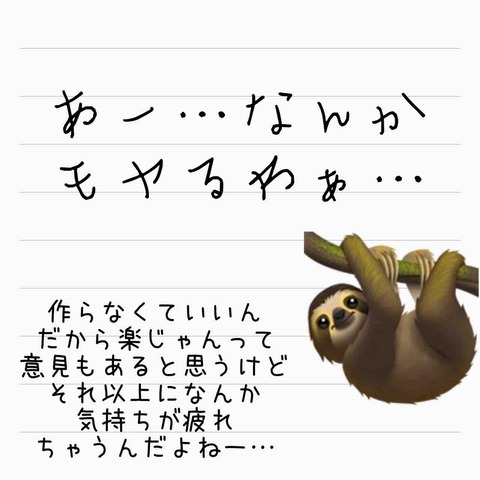 あー…なんか
モヤるわぁ…
作らなくていいん
だから楽じゃんって
意見もあると思うけど
それ以上になんか
気持ちが疲れ
ちゃうんだよねー…